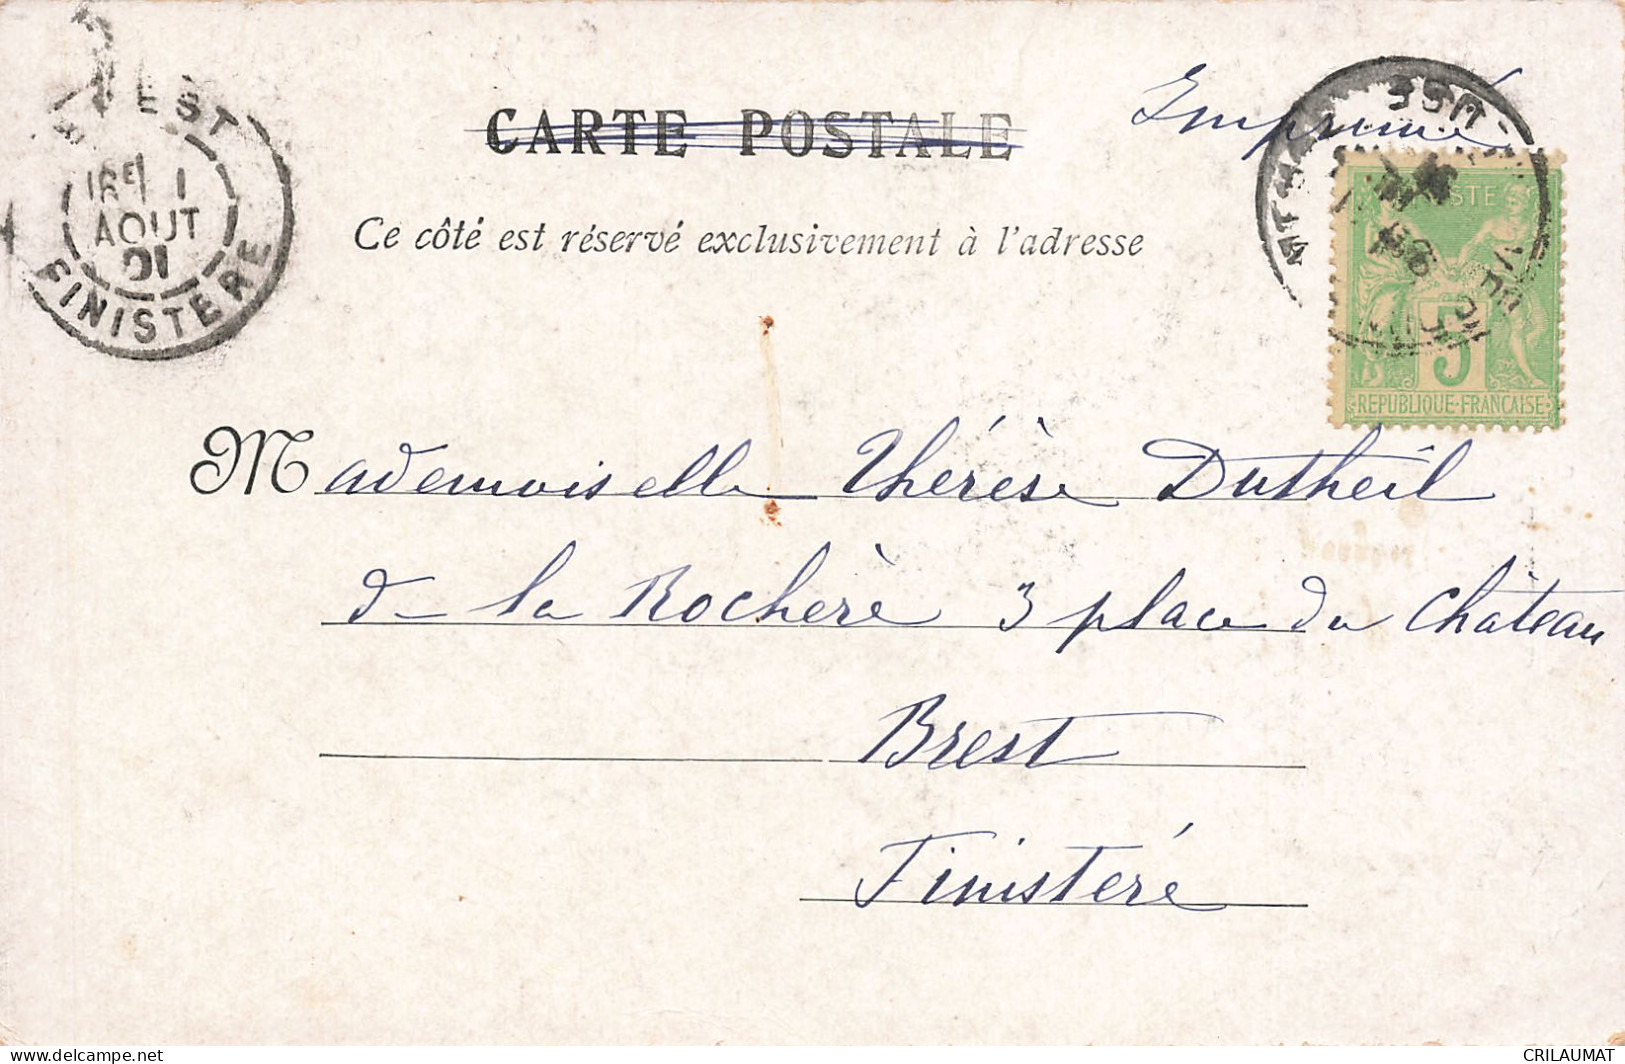 CARTE POSTALE
Imprimé
Ce côté est réservé exclusivement à l'adresse
BREST
1
AOUT
01
FINISTERE
POSTE
5
REPUBLIQUE-FRANCAISE
Mademoiselle Thérèse Dutheil
de la Rochère 3 place du Château
Brest
Finistère
www.delcampe.net
CRILAUMAT